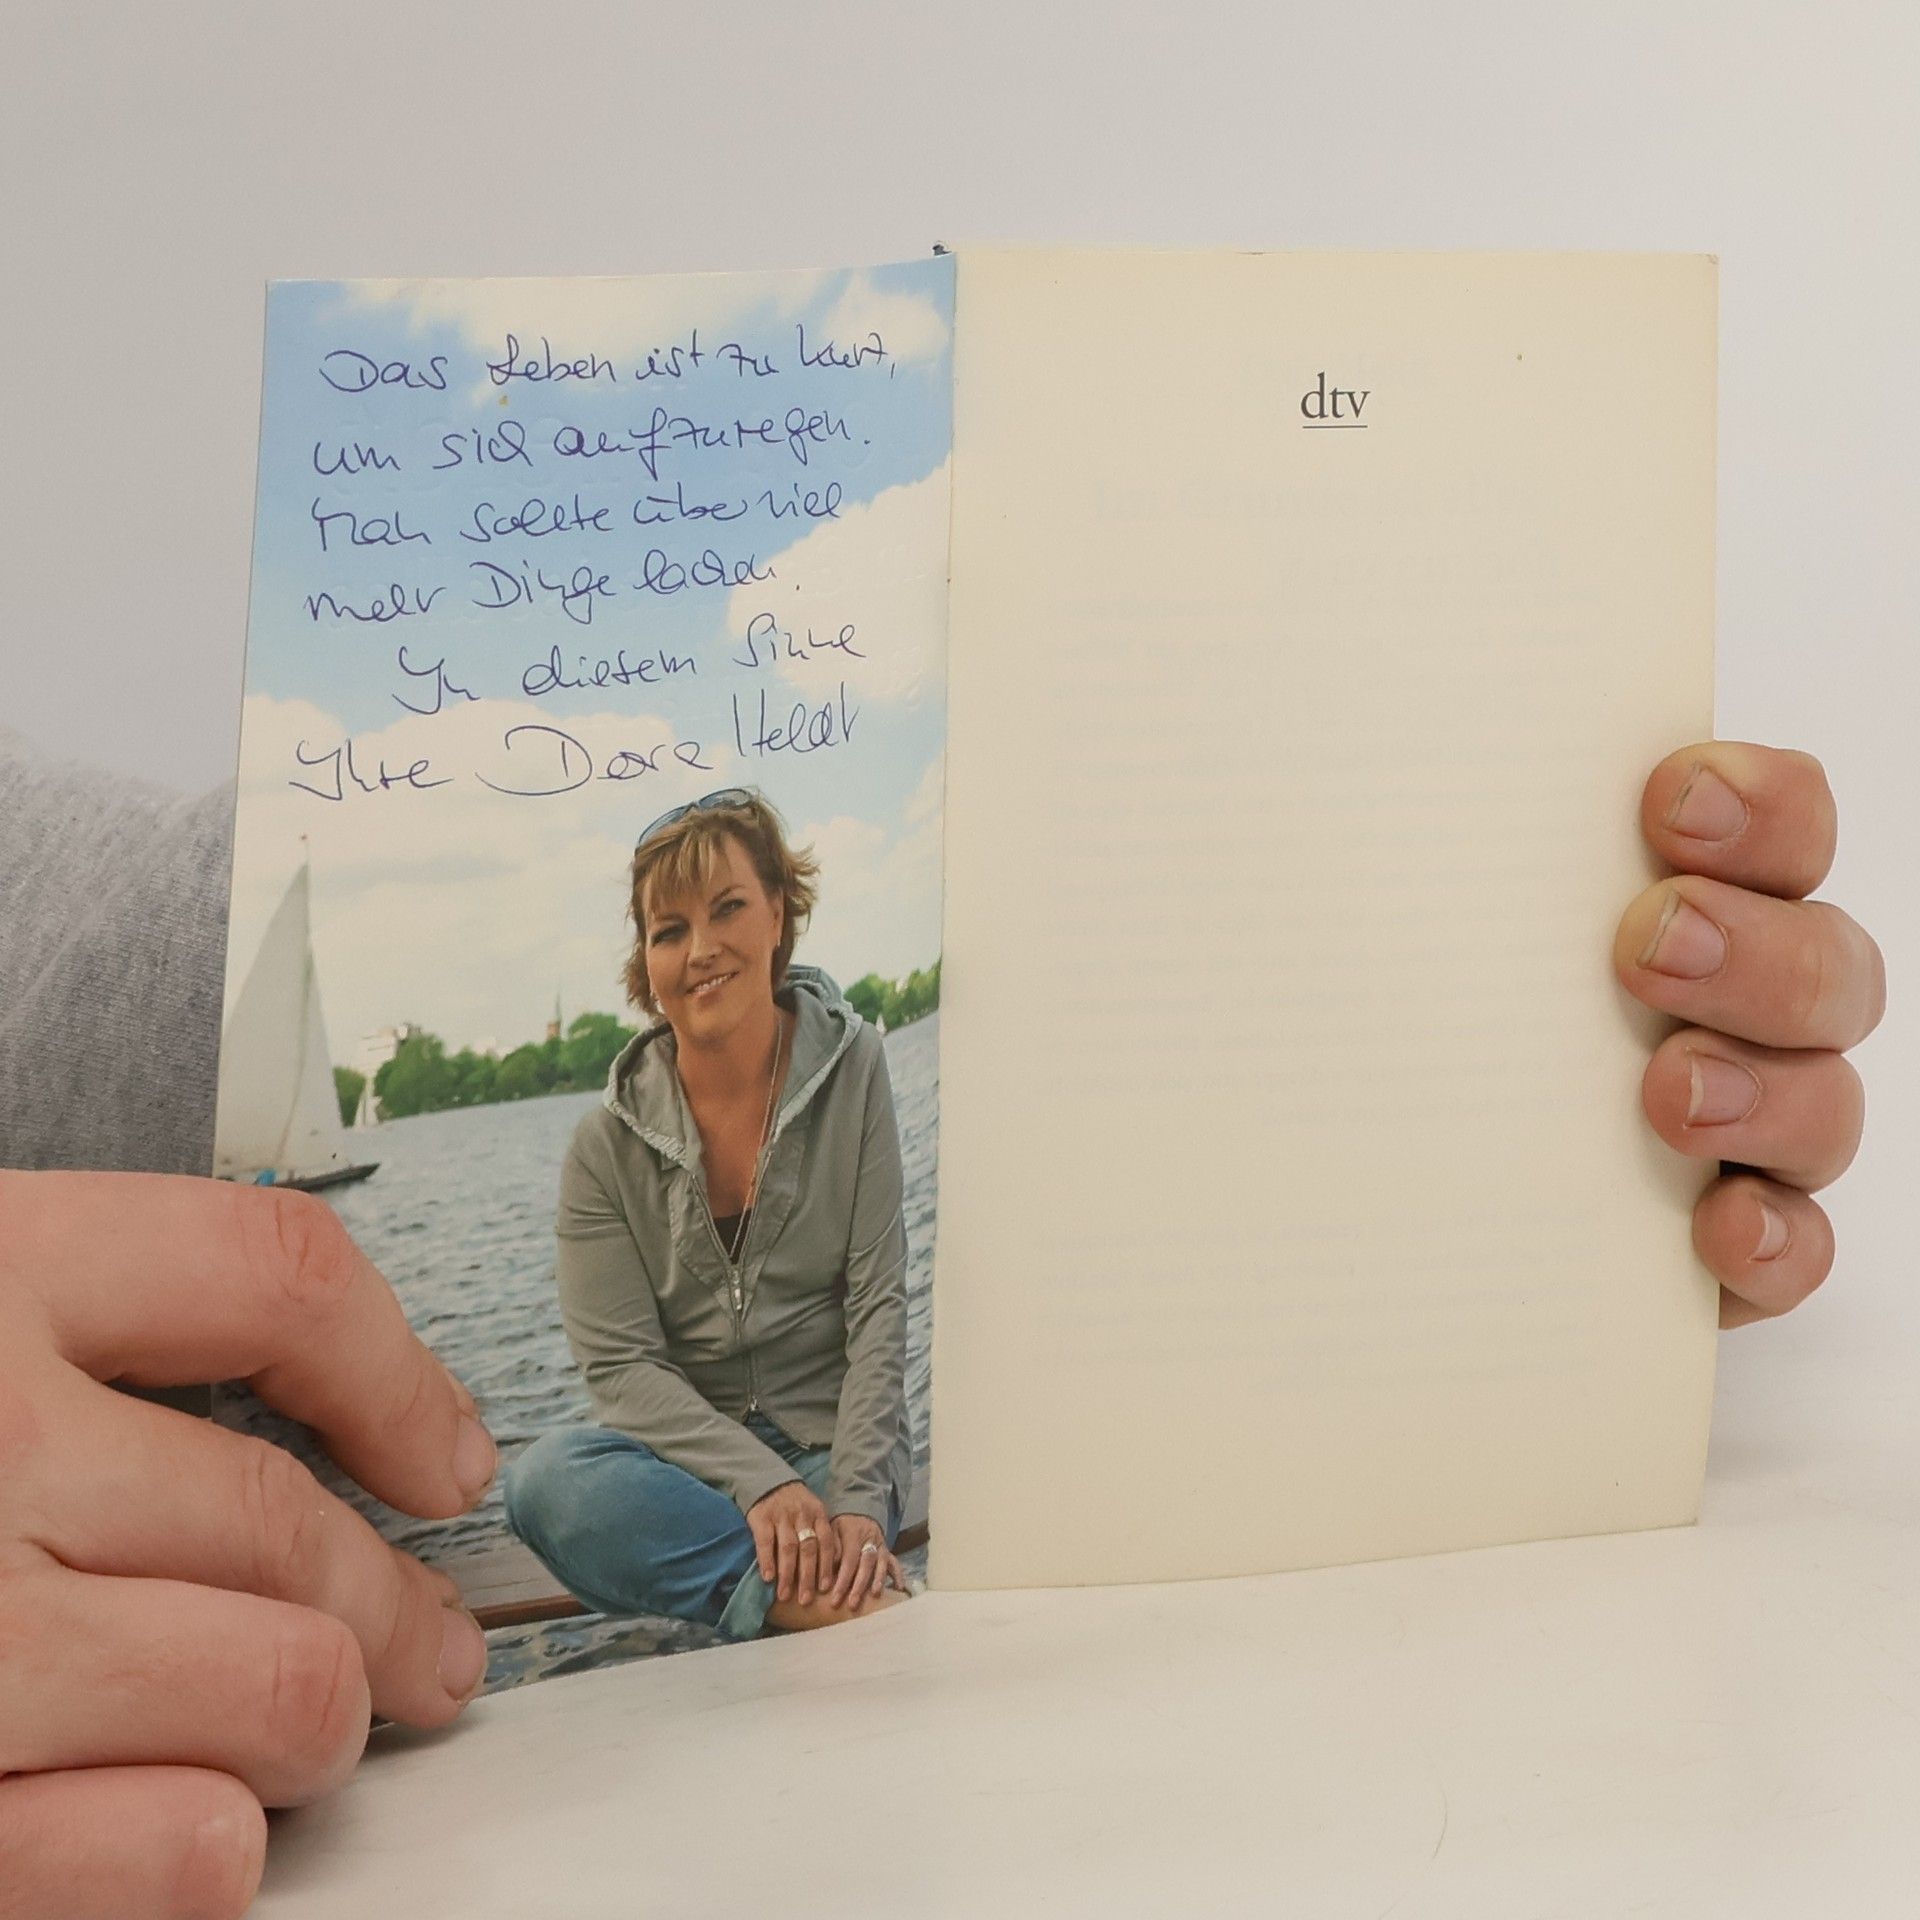 Das Leben ist zu kurz,
um sich aufzuregen.
Man sollte über viel
mehr Dinge lachen.
In diesem Sinne
Ihre Dora Heldt
dtv